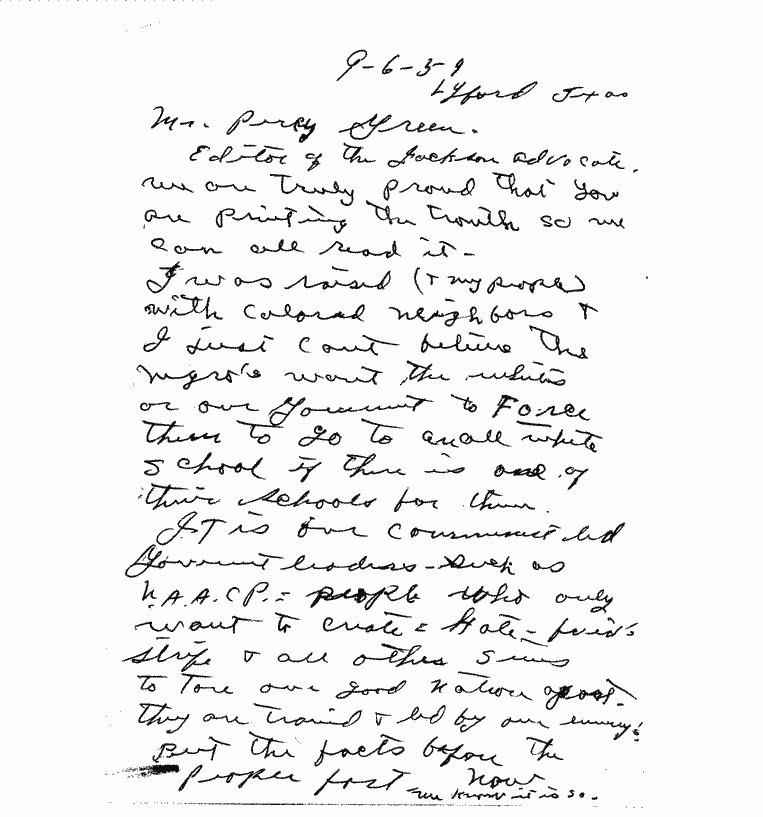 9-6-59
Lyford Texas
Mr. Percy Green.
Editor of the Jackson advocate.
we are Truly proud that you
are printing the trouth so we
can all read it -
I was raised (& my people)
with colored neighbors &
I just cant believe the
negro's want the whites
or our Goverment to Force
them to go to an all white
school if there is one of
their schools for them.
IT is our Communist led
Goverment leaders - such as
N.A.A.C.P. = people who only
want to create = Hate -
strife & all other sins
to Tore our good nation apart.
they are traind & led by our enemy!
But the facts before the
people fast now
we know it is so.